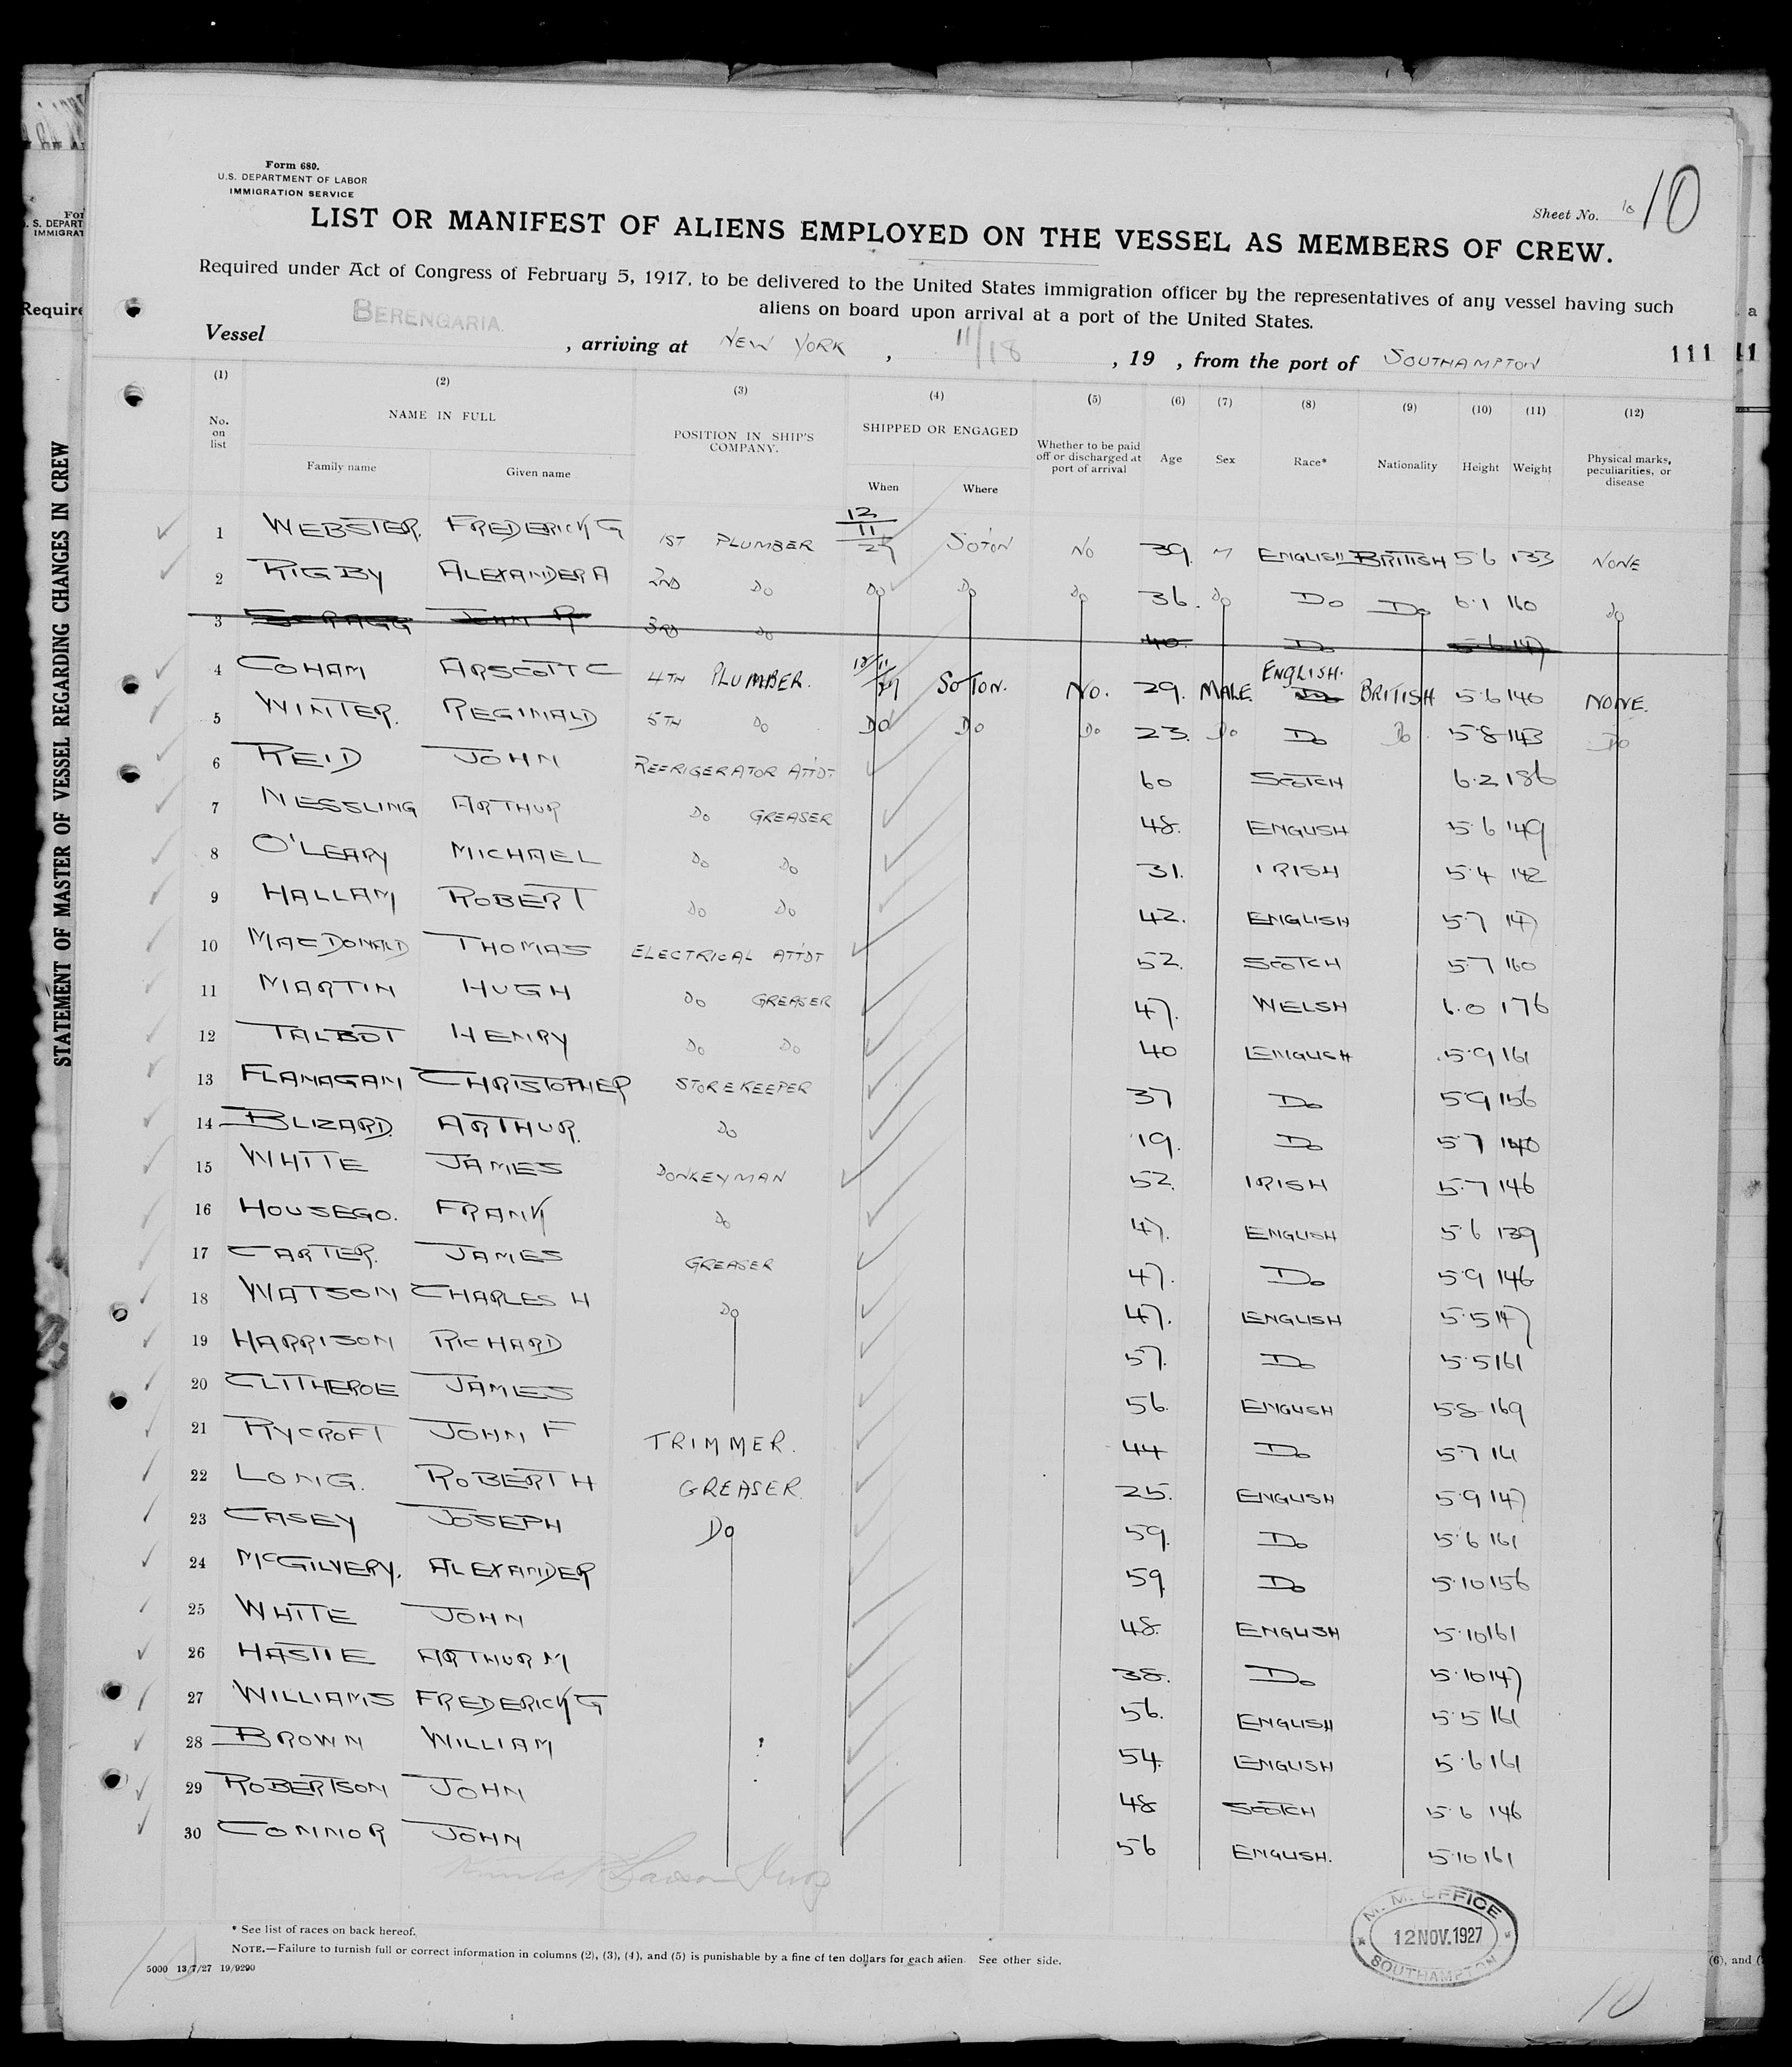 Form 680.
U.S. DEPARTMENT OF LABOR
IMMIGRATION SERVICE
Sheet No. 10 10
LIST OR MANIFEST OF ALIENS EMPLOYED ON THE VESSEL AS MEMBERS OF CREW.
Required under Act of Congress of February 5, 1917, to be delivered to the United States immigration officer by the representatives of any vessel having such
aliens on board upon arrival at a port of the United States.
Vessel BERENGARIA , arriving at NEW YORK , 11/18 , 19 , from the port of SOUTHAMPTON 111
(1) (2) (3) (4) (5) (6) (7) (8) (9) (10) (11) (12)
No. on list NAME IN FULL POSITION IN SHIP'S COMPANY. SHIPPED OR ENGAGED Whether to be paid off or discharged at port of arrival Age Sex Race* Nationality Height Weight Physical marks, peculiarities, or disease
Family name Given name When Where
1 WEBSTER. FREDERICK G 1ST PLUMBER 12/11/27 SOTON NO 39. M ENGLISH BRITISH 5 6 133 NONE
2 RIGBY ALEXANDER A 2ND DO DO DO DO 36. DO DO DO 6.1 160 DO
3 SCRAGG JOHN R 3RD DO 40. DO 5 6 147
4 COHAM ARSCOTT C 4TH PLUMBER. 12/11/27 SOTON. NO. 29. MALE. ENGLISH. DO BRITISH 5.6 140 NONE.
5 WINTER. REGINALD 5TH DO DO DO DO 23. DO DO DO 5.8 143 DO
6 REID JOHN REFRIGERATOR ATTDT 60 SCOTCH 6.2 186
7 NESSLING ARTHUR DO GREASER 48. ENGLISH 5.6 149
8 O'LEARY MICHAEL DO DO 31. IRISH 5.4 142
9 HALLAM ROBERT DO DO 42. ENGLISH 5.7 147
10 MACDONALD THOMAS ELECTRICAL ATTDT 52. SCOTCH 5.7 160
11 MARTIN HUGH DO GREASER 47. WELSH 6.0 176
12 TALBOT HENRY DO DO 40 ENGLISH 5.9 161
13 FLANAGAN CHRISTOPHER STOREKEEPER 37 DO 5.9 156
14 BLIZARD. ARTHUR. DO 19. DO 5.7 140
15 WHITE JAMES DONKEYMAN 52. IRISH 5.7 146
16 HOUSEGO. FRANK DO 47. ENGLISH 5 6 139
17 CARTER. JAMES GREASER 47. DO 5.9 146
18 WATSON CHARLES H DO 47. ENGLISH 5.5 147
19 HARRISON RICHARD 57. DO 5.5 161
20 CLITHEROE JAMES 56. ENGLISH 5.8 169
21 RYCROFT JOHN F TRIMMER. 44 DO 5.7 141
22 LONG. ROBERT H GREASER. 25. ENGLISH 5.9 147
23 CASEY JOSEPH DO 59. DO 5.6 161
24 MCGILVERY. ALEXANDER 59. DO 5.10 156
25 WHITE JOHN 48. ENGLISH 5.10 161
26 HASTIE ARTHUR M 38. DO 5.10 147
27 WILLIAMS FREDERICK G 56. ENGLISH 5.5 161
28 BROWN WILLIAM 54. ENGLISH 5.6 161
29 ROBERTSON JOHN 48 SCOTCH 5.6 146
30 CONNOR JOHN 56 ENGLISH. 5.10 161
* See list of races on back hereof.
NOTE.—Failure to furnish full or correct information in columns (2), (3), (4), and (5) is punishable by a fine of ten dollars for each alien. See other side.
5000 13/7/27 19/9290
M. M. OFFICE
12 NOV. 1927
SOUTHAMPTON
10
10
STATEMENT OF MASTER OF VESSEL REGARDING CHANGES IN CREW